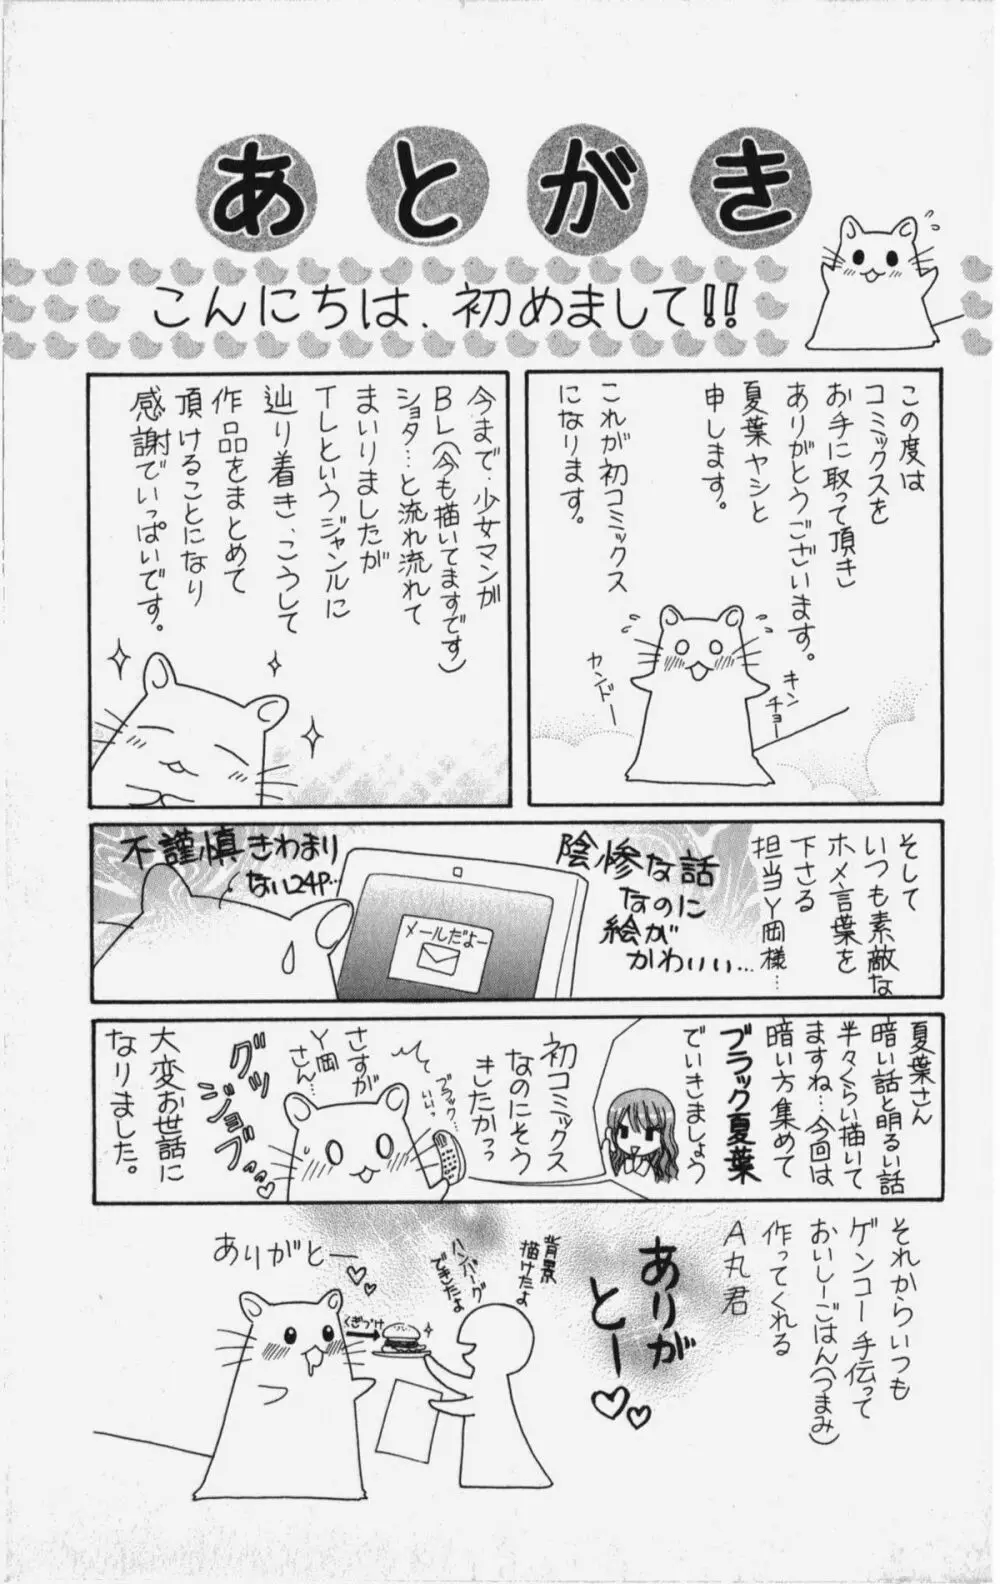 あとがき
こんにちは、初めまして!!
この度は
コミックスを
お手に取って頂き
ありがとうございます。
夏葉ヤシと
申します。
これが初コミックス
になります。
キンチョー
カンドー
今まで、少女マンガ
BL(今も描いてますです)
ショタ…と流れ流れて
まいりましたが
TLというジャンルに
辿り着き、こうして
作品をまとめて
頂けることになり
感謝でいっぱいです。
そして
いつも素敵な
ホメ言葉を
下さる
担当Y岡様…
陰惨な話
なのに
絵が
かわいい…
メールだよー
不謹慎きわまり
ない24P…
夏葉さん
暗い話と明るい話
半々くらい描いて
ますね…今回は
暗い方集めて
ブラック夏葉
でいきましょう
初コミックス
なのにそう
きたかっ
ブラック…
いいっ
さすが
Y岡
さん…
グッ
ジョブ…
大変お世話に
なりました。
それからいつも
ゲンコー手伝って
おいしーごはん(つまみ)
作ってくれる
A丸君
ありが
とー
背景
描けたよ
ハンバーグ
できたよ
くぎづけ
ありがとー